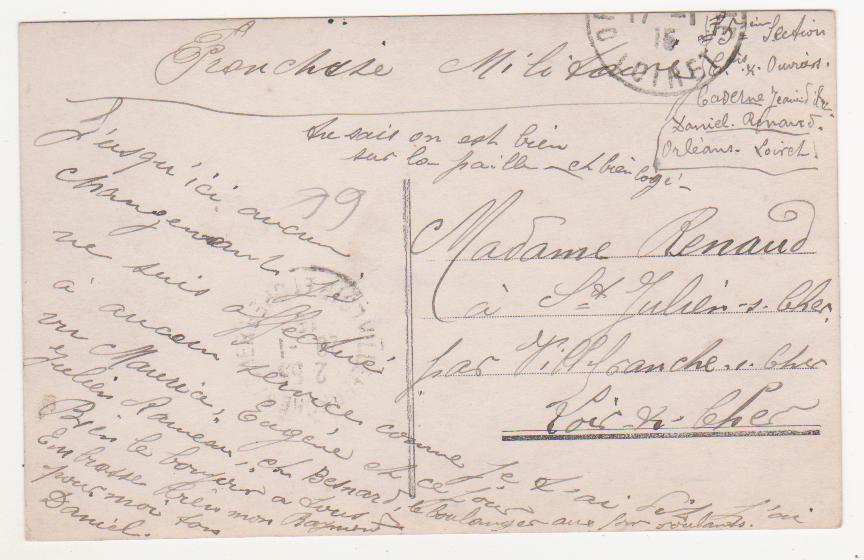 Franchise Militaire
17 - 1
15
LOIRET
5eme Section
Ouvriers.
Caserne Jeanne d'Arc
Daniel Renaud.
Orléans. Loiret.
tu sais on est bien
sur la paille et bien logé -
99
Jusqu'ici aucun
changement je
ne suis affecté
à aucun service comme je t'ai dit j'ai
vu Maurice, Eugène et ce jour
Julien Rameau, et Besnard, le boulanger aux
Bien le bonjour à tous
Embrasse bien mon Raymond
pour moi ton
Daniel.
Madame Renaud
à St Julien-s-Cher
par Villefranche-s-Cher
Loir-&-Cher